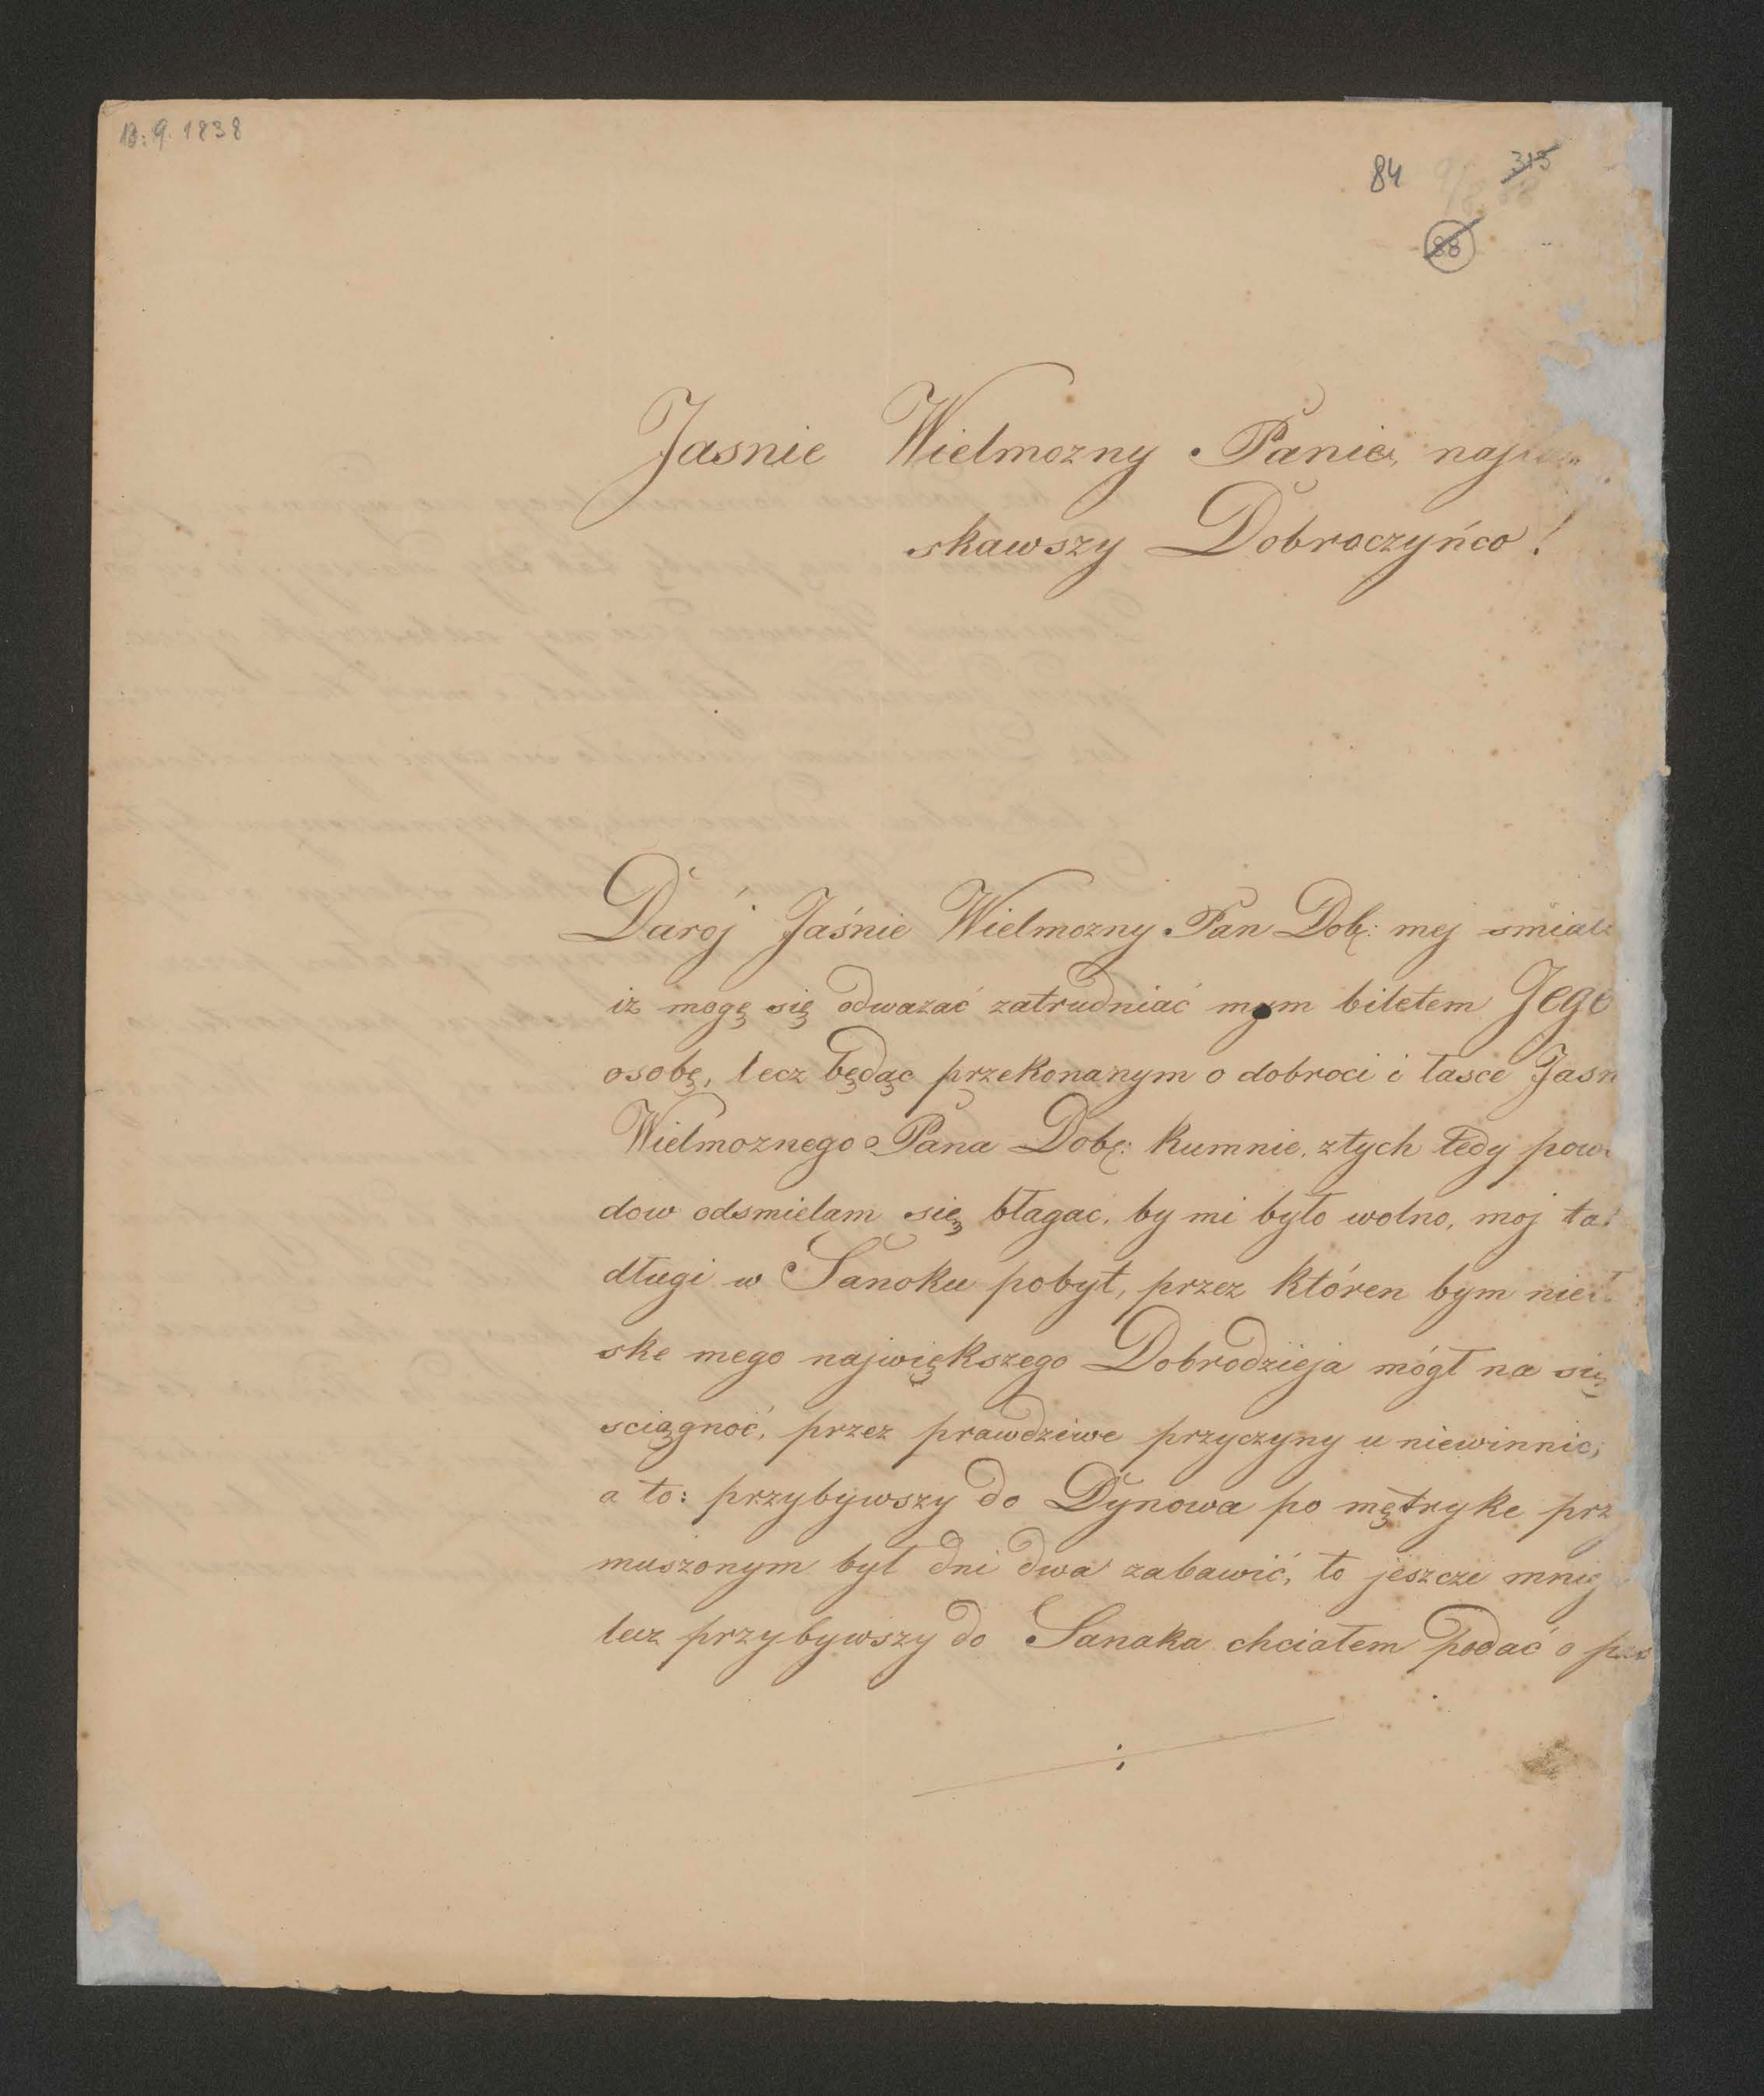 13.9.1838
84
315
88
Jasnie Wielmozny Panie, naj
skawszy Dobroczyńco!
Daroj Jaśnie Wielmozny Pan Dob: mej smiał
iz mogę się odwazać zatrudniać mym biletem Jego
osobę, lecz będąc przekonanym o dobroci i łasce Jasn
Wielmoznego Pana Dob: kumnie, ztych tedy powo
dow odsmielam się błagac, by mi było wolno, moj ta
długi w Sanoku pobyt, przez któren bym nieł
ske mego największego Dobrodzieja mógł na się
sciągnoć, przez prawdziwe przyczyny uniewinnić,
a to: przybywszy do Dynowa po mętryke prz
muszonym był dni dwa zabawić, to jeszcze mniej
lecz przybywszy do Sanaka chciałem podać o